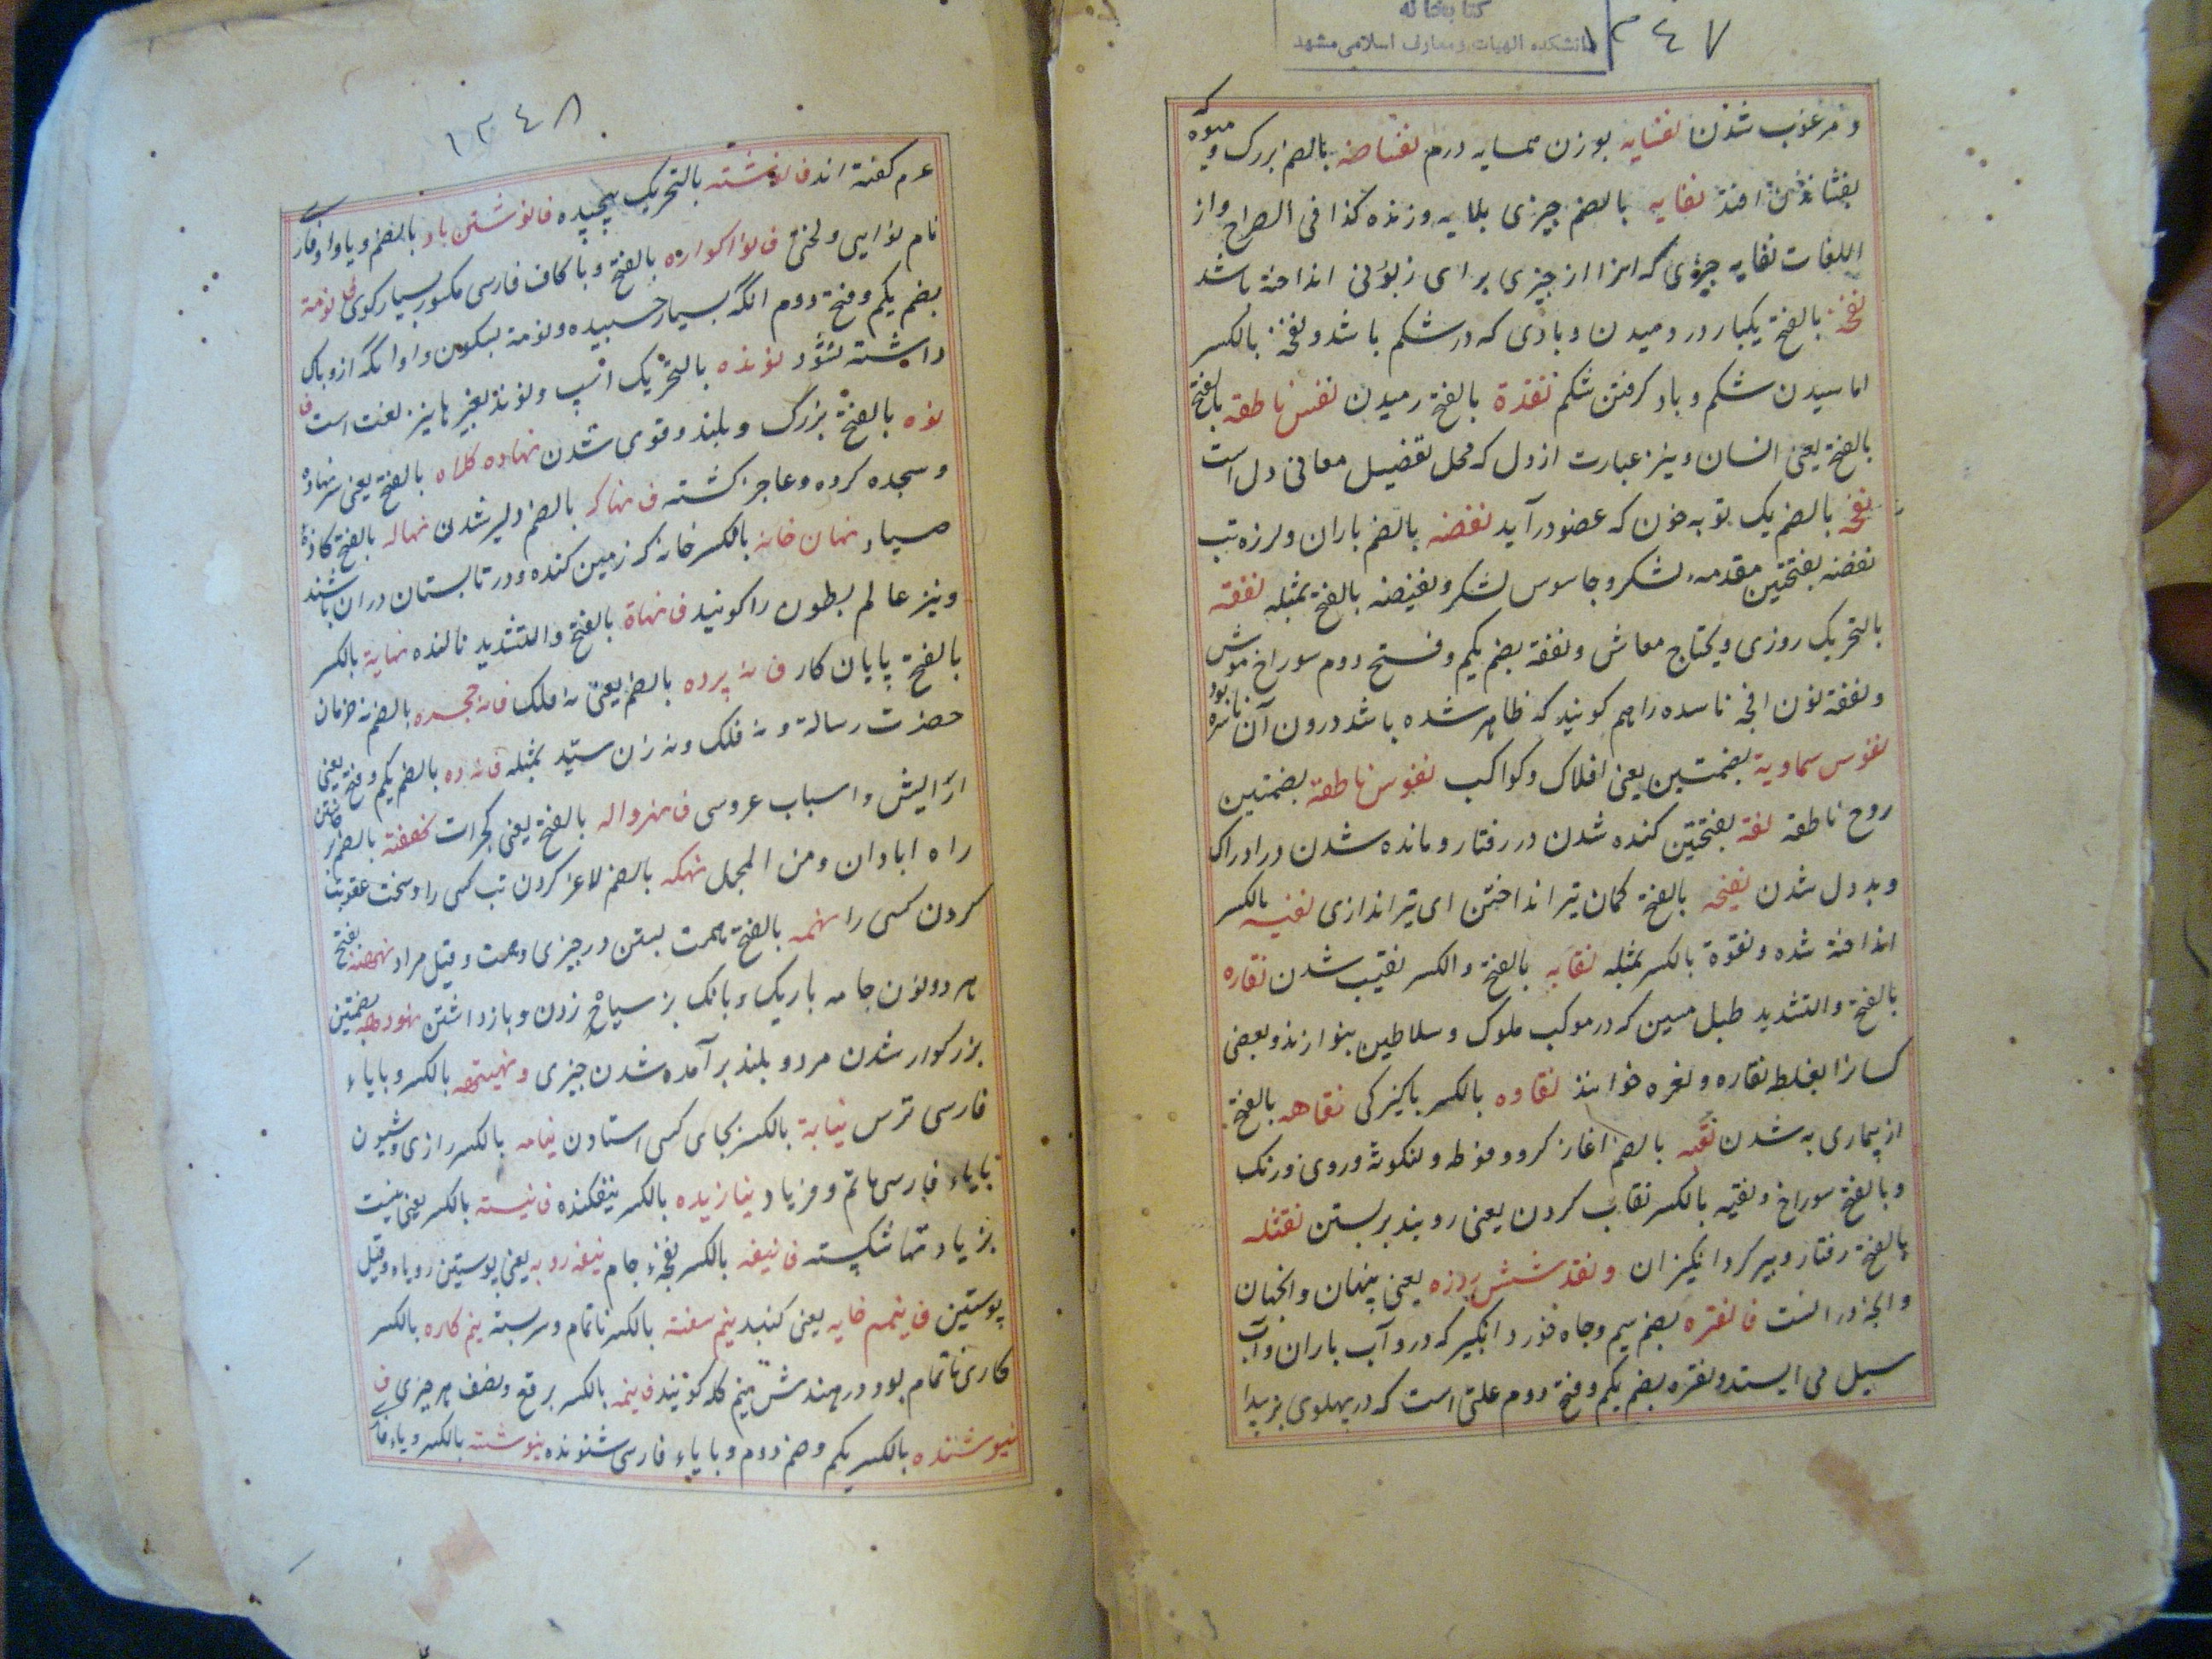 كتابخانه
دانشكده الهيات و معارف اسلامى مشهد
١٢٤٧
و مرغوب شدن نفسایه بوزن همسایه درم نفاضه بالضم بزرک و میوه که
بفشاندن افتد نفایه بالضم چیزی بلایه وزنده کذا فی الصراح و از
اللغات نفایه چیزی که انرا از چیزی برای زبونی انداخته باشد
نفخه بالفتح یکبار در دمیدن و بادی که در شکم باشد و نفخه بالکسر
اماسیدن شکم و باد کرفتن شکم نفذة بالفتح رمیدن نفس ناطقه بالفتح
بالفتح یعنی انسان و نیز عبارت از دل که محل تفضیل معانی دل است
نفحه بالضم یک توبه خون که عضو درآید نفضه بالضم باران و لرزه تب
نفضه بفتحتین مقدمه لشکر و جاسوس لشکر و نفیضه بالفتح بمثله نفقه
بالتحریک روزی و یحتاج معاش و نفقه بضم یکم و فتح دوم سوراخ موش
و نفقه نون افجه ناسده راهم کویند که ظاهر شده باشد درون آن
نفوس سماویة بضمتین یعنی افلاک و کواکب نفوس ناطقة بضمتین
روح ناطقه نفة بفتحتین کنده شدن در رفتار و مانده شدن در ادراک
و بد دل شدن نفیحه بالفتح کمان تیر انداختن ای تیراندازی نفیه بالکسر
انداخته شده و نقوة بالکسر بمثله نقابه بالفتح و الکسر نقیب شدن نقاره
بالفتح و التشدید طبل مسین که در موکب ملوک و سلاطین بنوازند و بعضی
کسانرا بغلط نقاره و نغره خوانند نقاوه بالکسر پاکیزکی نقاهه بالفتح
از بیماری به شدن نقبه بالضم اغاز کرو و فوطه و لنکوته و روی و رنک
و بالفتح سوراخ و نقبه بالکسر نقاب کردن یعنی روبند بر بستن نقثله
بالفتح رفتار و پیر کرد انکیزان و نقد شش روزه یعنی پنهان و انجهان
و انچه در انست فا نقره بضم سیم و جاه خورد انکیر که درو آب باران و آب
سیل می ایستد و نقره بضم یکم و فتح دوم علتی است که در پهلوی بز پیدا
١٢٤٨
عدم کفته اند فا نوشته بالتحریک پیچیده فا نوشتن باد بالضم و یا واو فارسی
نام نوایی و لحنی فا نوا کواره بالفتح و با کاف فارسی مکسور بسیار کوی نومة
بضم یکم و فتح دوم انکه بسیار خسبیده و نومة بسکون واو انکه ازو باک
داشته نشود نونده بالتحریک اسپ و نوند بغیر ها نیز لغت است ف
نوه بالفتح بزرک و بلند و قوی شدن نهاده کلاه بالفتح یعنی سر نهاده
و سجده کرده و عاجز کشته ف نهاکه بالضم دلیر شدن نهاله بالفتح کازه
صیاد نهان خانه بالکسر خانه که زمین کنده و در تابستان دران باشند
و نیز عالم بطون را کویند ف نهاة بالفتح و التشدید نالنده نهایة بالکسر
بالفتح پایان کار ف نه پرده بالضم یعنی نه فلک فا نه حجره بالضم نه حرمان
حضرت رسالة و نه فلک و نه زن سید بمثله ف نه ده بالضم یکم و فتح یعنی
ارایش و اسباب عروسی ف نهرواله بالفتح یعنی کجرات نهفته بالضم
راه ابادان و من المجمل نهکه بالضم لاغر کردن تب کسی را و سخت عقوبت
کردن کسی را نهمه بالفتح همت بستن در چیزی و همت و قیل مراد نهنهه بفتح
هر دو نون جامه باریک و بانک بر سیاح زدن و باز داشتن نهودهه بضمتین
بزرکوار شدن مرد و بلند بر آمده شدن چیزی و نهیتهه بالکسر و بایاء
فارسی ترس نیابة بالکسر بجای کسی استادن نیامه بالکسر رازی و شیون
بایاء فارسی ماتم و فریاد نیازیده بالکسر نیفکنده ف نیسته بالکسر یعنی نیست
بزیادتها شکسته فا نیفه بالکسر نفجهء جام نیفه روبه یعنی پوستین روباه و قیل
پوستین ف نیم خایه یعنی کنبد نیم سفته بالکسر ناتمام و سربسته نیم کاره بالکسر
کاری ناتمام بود و در هندش نیم کله کویند ف نیمه بالکسر برقع و نصف هر چیزی ف
نیوشنده بالکسر یکم و ضم دوم و بایاء فارسی شنونده نیوشته بالکسر و یاء فا